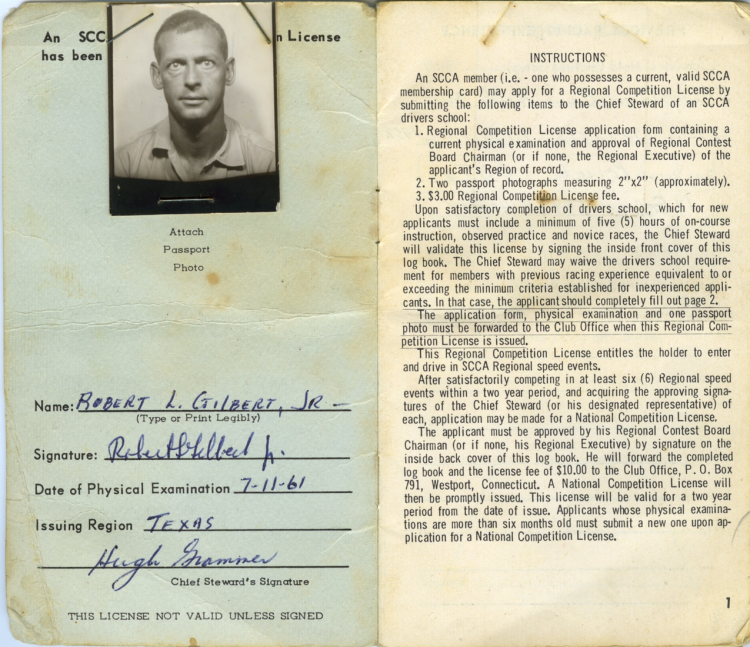 An SCC
n License
has been
Attach
Passport
Photo
Name: ROBERT L. GILBERT, JR —
(Type or Print Legibly)
Signature: Robert L Gilbert Jr.
Date of Physical Examination 7-11-61
Issuing Region TEXAS
Hugh Grammer
Chief Steward's Signature
THIS LICENSE NOT VALID UNLESS SIGNED
INSTRUCTIONS
An SCCA member (i.e. - one who possesses a current, valid SCCA
membership card) may apply for a Regional Competition License by
submitting the following items to the Chief Steward of an SCCA
drivers school:
1. Regional Competition License application form containing a
current physical examination and approval of Regional Contest
Board Chairman (or if none, the Regional Executive) of the
applicant's Region of record.
2. Two passport photographs measuring 2"x2" (approximately).
3. $3.00 Regional Competition License fee.
Upon satisfactory completion of drivers school, which for new
applicants must include a minimum of five (5) hours of on-course
instruction, observed practice and novice races, the Chief Steward
will validate this license by signing the inside front cover of this
log book. The Chief Steward may waive the drivers school require-
ment for members with previous racing experience equivalent to or
exceeding the minimum criteria established for inexperienced appli-
cants. In that case, the applicant should completely fill out page 2.
The application form, physical examination and one passport
photo must be forwarded to the Club Office when this Regional Com-
petition License is issued.
This Regional Competition License entitles the holder to enter
and drive in SCCA Regional speed events.
After satisfactorily competing in at least six (6) Regional speed
events within a two year period, and acquiring the approving signa-
tures of the Chief Steward (or his designated representative) of
each, application may be made for a National Competition License.
The applicant must be approved by his Regional Contest Board
Chairman (or if none, his Regional Executive) by signature on the
inside back cover of this log book. He will forward the completed
log book and the license fee of $10.00 to the Club Office, P. O. Box
791, Westport, Connecticut. A National Competition License will
then be promptly issued. This license will be valid for a two year
period from the date of issue. Applicants whose physical examina-
tions are more than six months old must submit a new one upon ap-
plication for a National Competition License.
1